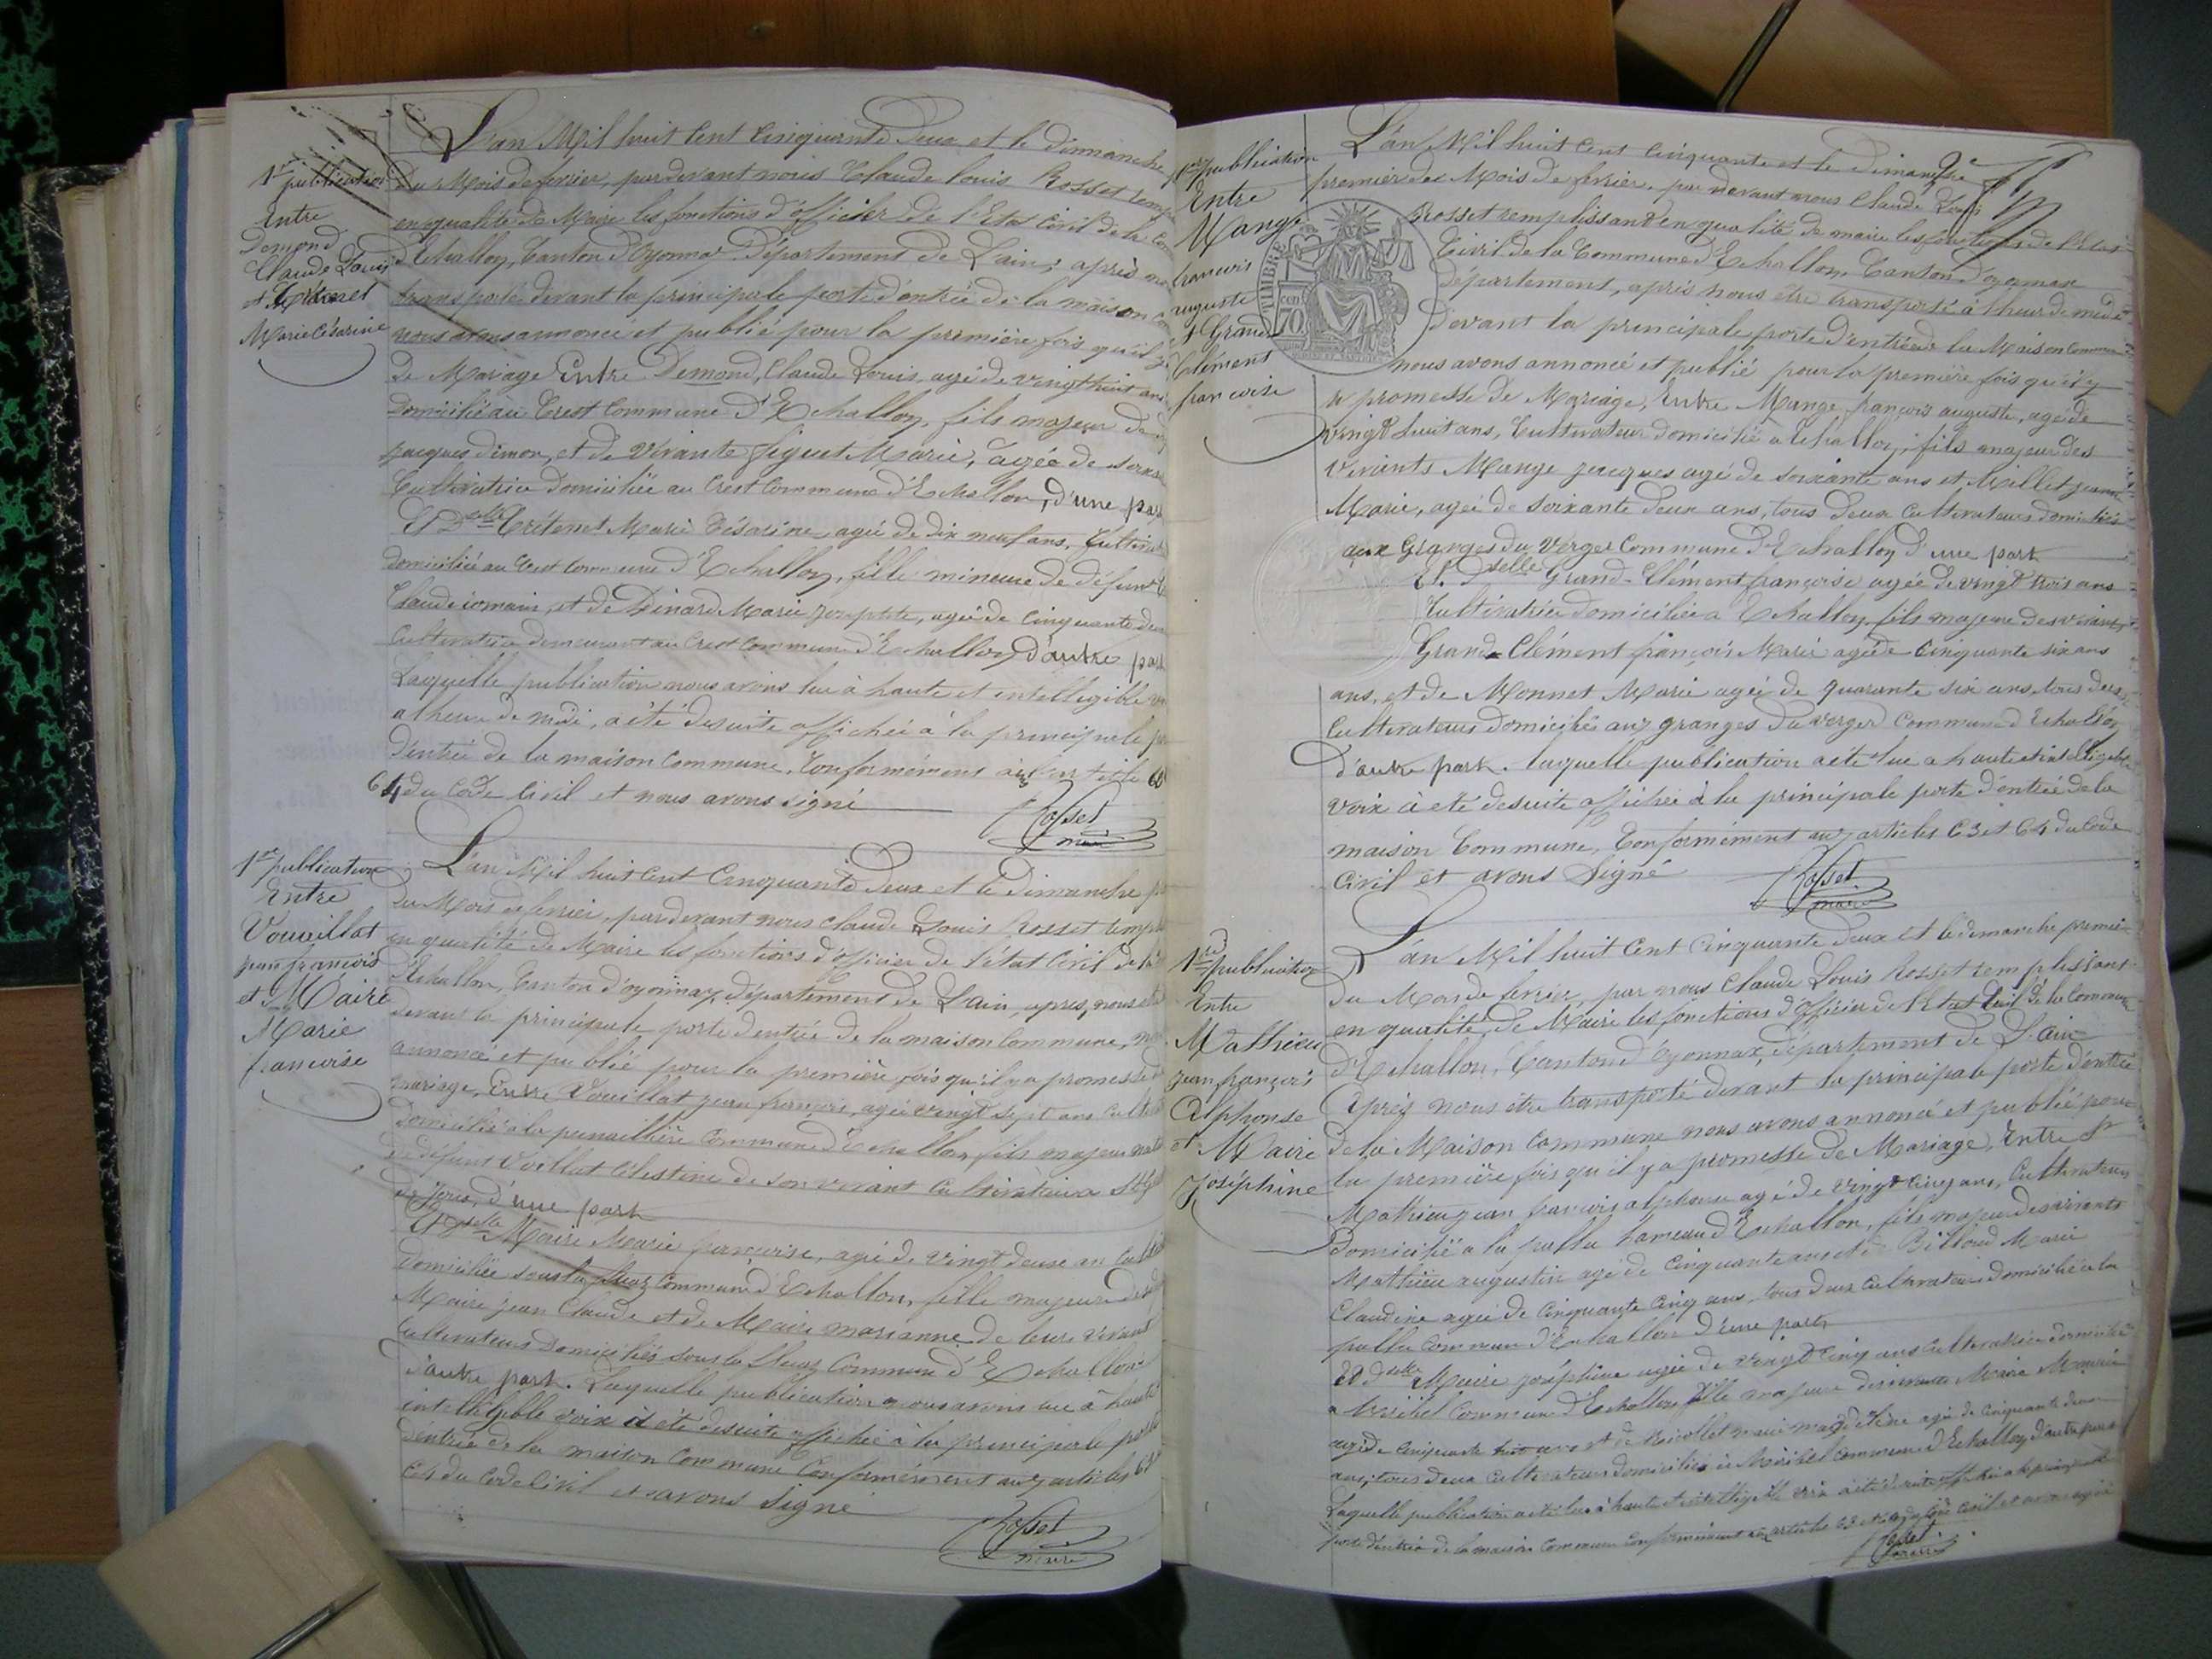 1re publication
Entre
Demond
Claude Louis
et Crétenet
Marie Césarine
L'an Mil huit Cent Cinquante Deux et le dimanche
du Mois de fevrier, pardevant nous Claude Louis Rosset
en qualité de Maire les fonctions d'officier de l'Etat Civil de la
d'Echallon, Canton d'Oyonnax Département de L'ain; après
transporté devant la principale porte d'entrée de la maison
nous avons annoncé et publié pour la première fois qu'il y
de Mariage Entre Demond, Claude Louis, agé de vingt huit ans
domicilié au Crest Commune d'Echallon, fils majeur de
jacques dimon, et de vivante figuet Marie, agée de
Cultivatrice domiciliée au Crest Commune d'Echallon, d'une part
Et Delle Crétenet Marie Césarine, agée de dix neuf ans,
domiciliée au Crest Commune d'Echallon, fille mineure de défunt
Claude romain, et de Dinard Marie josephte, agée de Cinquante
Cultivatrice demeurant au Crest Commune d'Echallon d'autre part
Laquelle publication nous avons lue à haute et intellegible
a lheure de midi, a été desuite affichée à la principale
D'entrée de la maison Commune, Conformément
64 du Code Civil et nous avons signé
Rosset
maire
1re publication
Entre
Vouaillat
jean françois
et Maire
Marie
francoise
L'an Mil huit Cent Cinquante Deux et le Dimanche
du Mois de fevrier, pardevant nous Claude Louis Rosset
en qualité de Maire les fonctions d'officier de l'état Civil de la
Echallon, Canton d'oyonnax, département de L'ain, apres nous
devant la principale porte d'entrée de la maison Commune,
annoncé et publié pour la première fois qu'il y a promesse de
mariage, Entre Vouillat jean francois, agé vingt sept ans
domicilié à la Commune d'Echallon, fils majeur
de défunt Vuillat Célestine de son vivant Cultivatrice a
d'une part
Et Delle Maire Marie françoise, agé de vingt deux an
domiciliée sous la Commune d'Echallon, fille majeure de
Maire jean Claude et de Maire marianne de leur vivant
Cultivateurs domiciliés sous la Commune d'Echallon
d'autre part. Laquelle publication nous avons lue à haute
intelligible voix a été desuite affichée à la principale porte
d'entrée de la maison Commune Conformément aux articles 63
64 du Code Civil et avons signé
Rosset
maire
1re publication
Entre
Mange
francois
auguste
et Grand
Clément
francoise
L'an Mil huit Cent Cinquante et le dimanche
premier du Mois de fevrier, par devant nous Claude Louis
Rosset remplissant en qualité de maire les fonctions de l'Etat
Civil de la Commune d'Echallon, Canton d'oyonnax
Département, après nous être transporté à lheur de midi
devant la principale porte d'entrée de la Maison Commune
nous avons annoncé et publié pour la première fois qu'il y
a promesse de Mariage, Entre Mange françois auguste, agé de
vingt huit ans, Cultivateur domicilié a Echallon, fils majeur des
vivants Mange jacques agé de soixante ans et Millet jeanne
Marie, agée de soixante Deux ans, tous Deux Cultivateurs domiciliés
aux Granges du verger Commune d'Echallon d'une part
Et Delle Grand-Clément françoise agée de vingt trois ans
Cultivatrice domiciliée a Echallon, fils majeure des vivants
Grand Clément françois Marie agé de Cinquante six ans
ans, et de Monnet Marie agée de quarante six ans, tous deux
Cultivateurs domiciliés aux granges du verger Commune d'Echallon
d'autre part. laquelle publication a été lue a haute et intelligible
voix à été desuite affichée à la principale porte d'entrée de la
maison Commune, Conformément aux articles 63 et 64 du Code
Civil et avons Signé
Rosset
maire
TIMBRE
70
1re publication
Entre
Mathieu
jean françois
Alphonse
et Maire
Joséphine
L'an Mil huit Cent Cinquante Deux et le dimanche premier
du Mois de fevrier, par nous Claude Louis Rosset remplissant
en qualité de Maire les fonctions d'officier de l'Etat Civil de la Commune
d'Echallon, Canton d'oyonnax, département de L'ain
Après nous être transporté devant la principale porte d'entrée
de la Maison Commune nous avons annoncé et publié pour
la première fois qu'il y a promesse de Mariage, Entre Sr
Mathieu jean francois alphonse agé de vingt cinq ans, Cultivateur
Domicilié a la palla hameau d'Echallon, fils majeur des vivants
Mathieu augustin agé de Cinquante ans et de Billoud Marie
Claudine agée de Cinquante Cinq ans tous deux Cultivateurs domiciliés a la
palla Commune d'Echallon D'une part
Et Delle Maire joséphine agée de vingt Cinq ans Cultivatrice domiciliée
a Commune d'Echallon fille majeure des vivants Maire
agé de Cinquante huit ans et de marie magdeleine agée de Cinquante deux
ans, tous deux Cultivateurs domiciliés à Commune d'Echallon d'autre part
Laquelle publication a été lue à haute et intelligible voix a été desuite affichée a la principale
porte d'entrée de la maison Commune Conformément aux articles 63 et 64 du Code Civil et avons signé
Rosset
maire